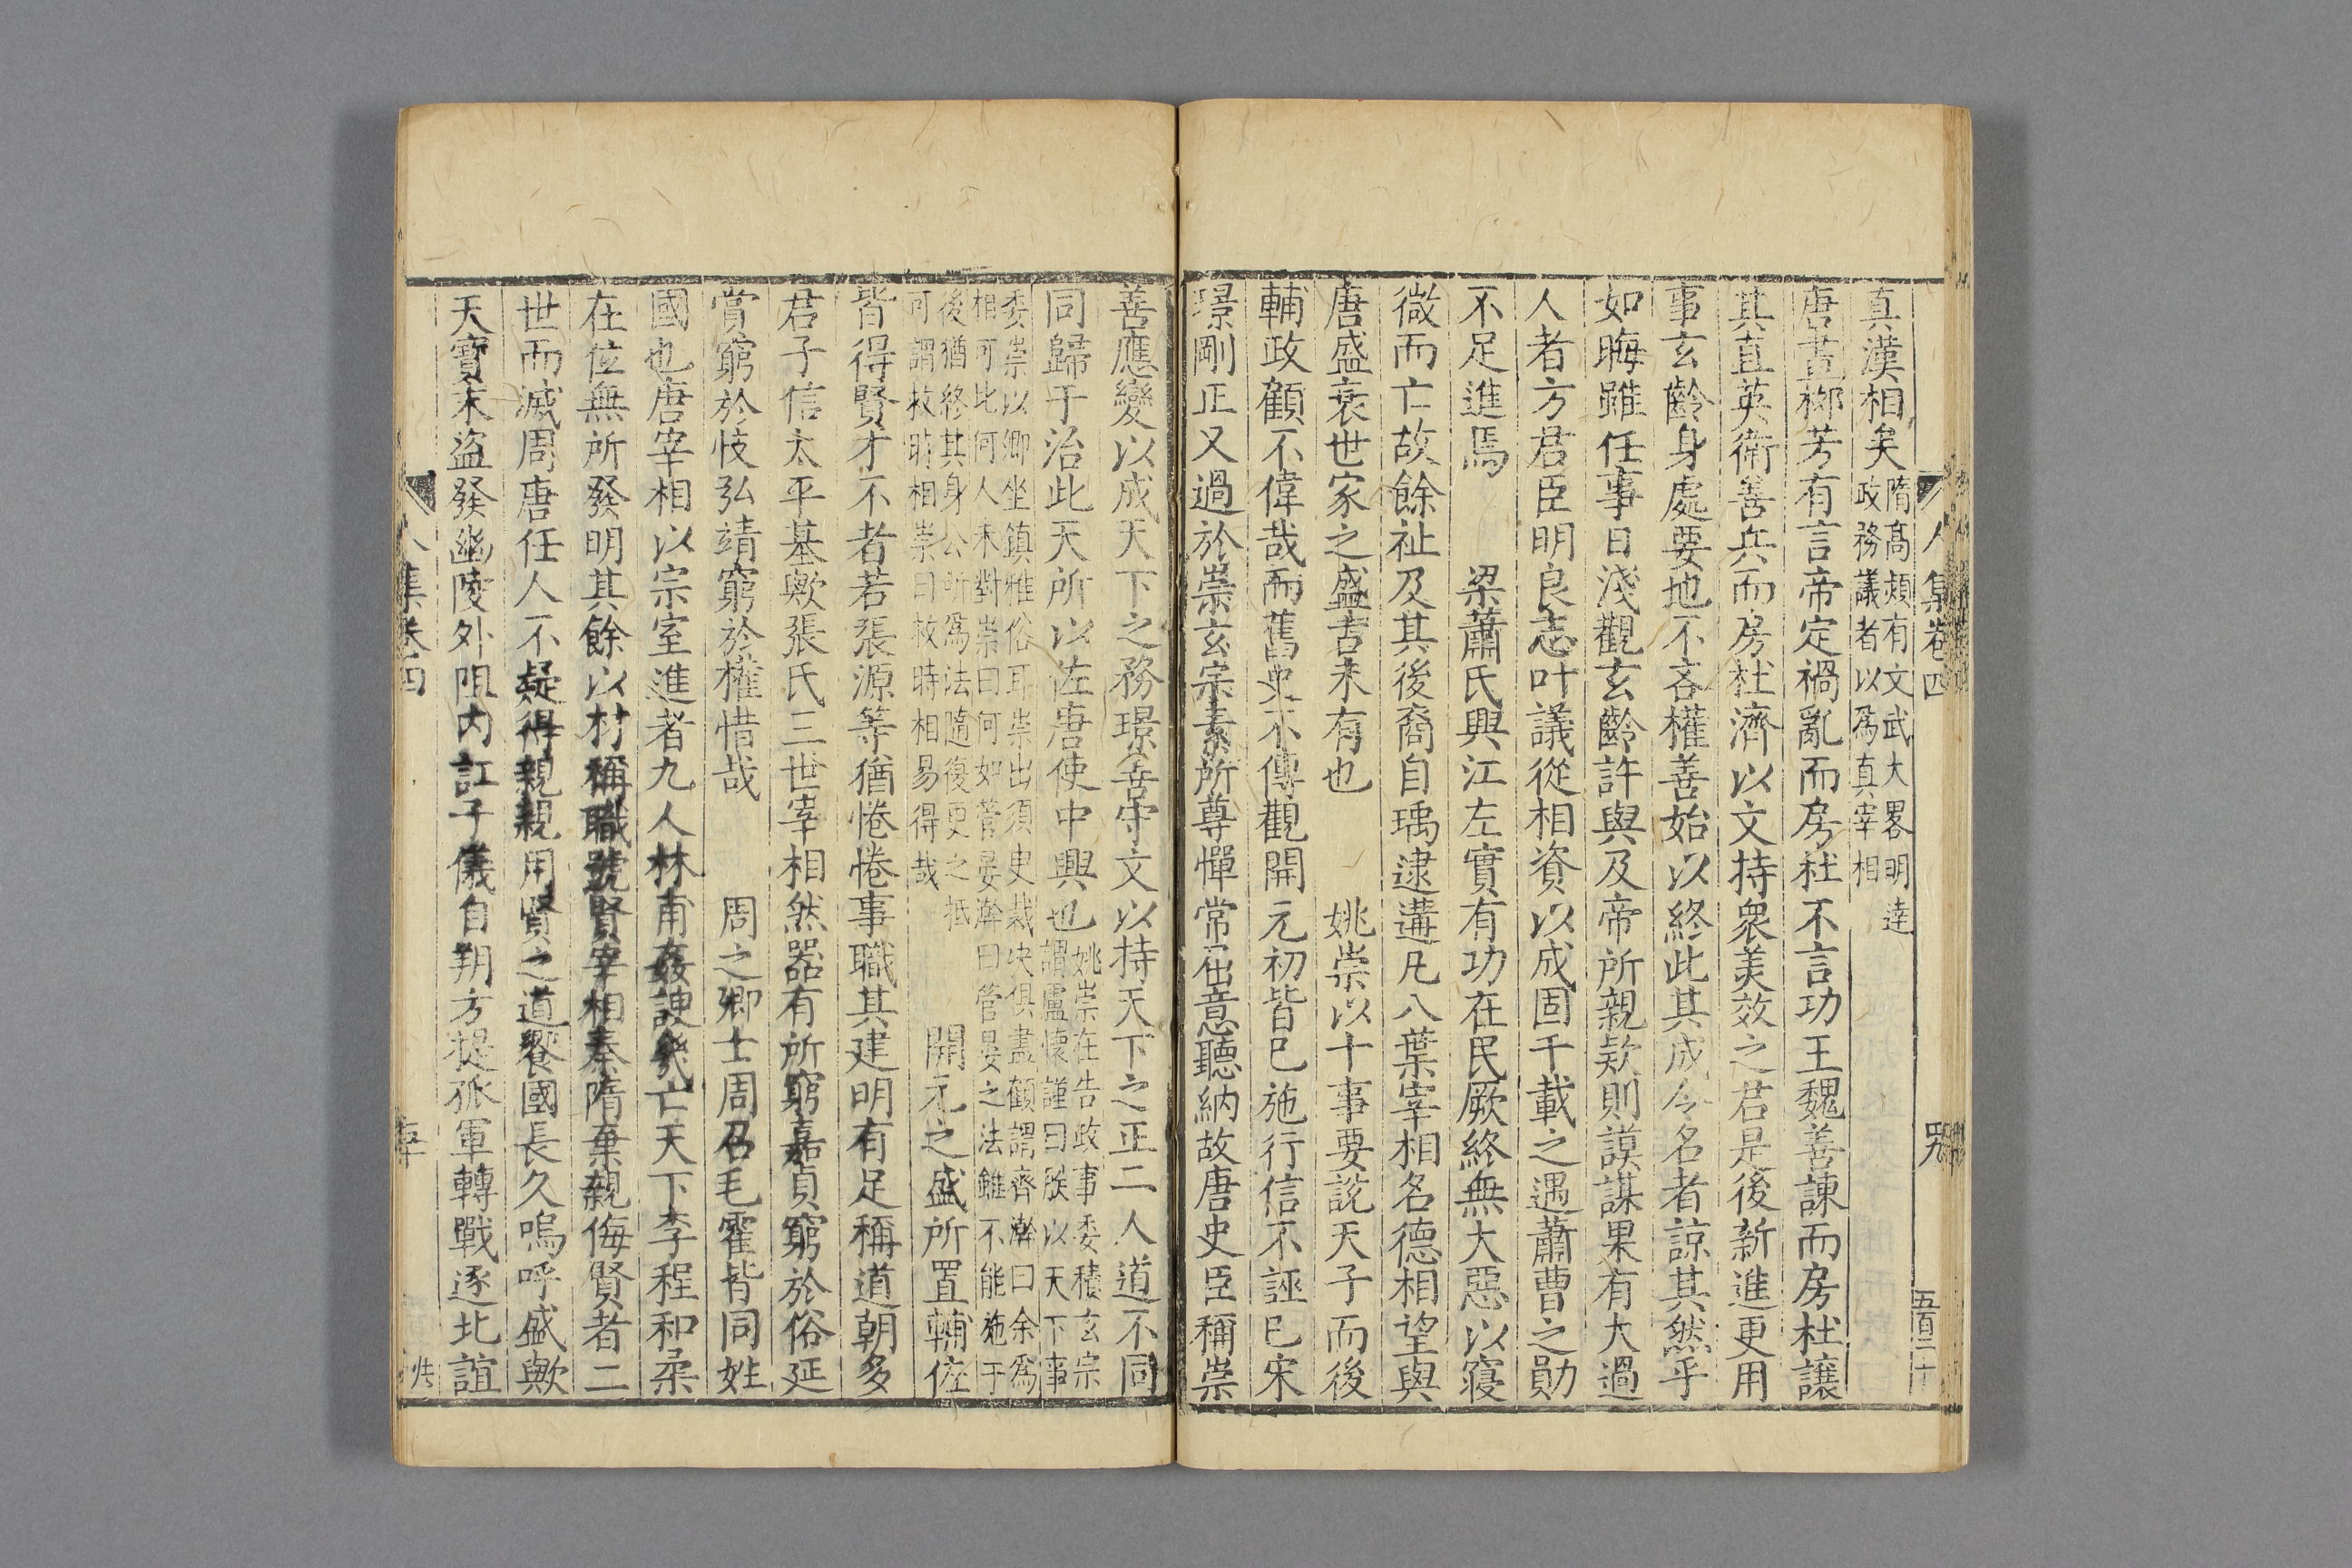 人集卷四
五百二十
真漢相矣隋髙熲有文武大畧明達
政務議者以爲真宰相
唐書栁芳有言帝定禍亂而房杜不言功王魏善諫而房杜讓
其直英衛善兵而房杜濟以文持衆美效之君是後新進更用
事玄齡身處要地不吝權善始以終此其成令名者諒其然乎
如晦雖任事日淺觀玄齡許與及帝所親欵則謨謀果有大過
人者方君臣明良志叶議從相資以成固千載之遇蕭曹之勛
不足進焉　梁蕭氏興江左實有功在民厥終無大惡以寖
微而亡故餘祉及其後裔自瑀逮遘凡八葉宰相名德相望與
唐盛衰世家之盛古未有也　姚崇以十事要說天子而後
輔政顧不偉哉而舊史不傳觀開元初皆已施行信不誣已宋
璟剛正又過於崇玄宗素所尊憚常屈意聽納故唐史臣稱崇
善應變以成天下之務璟善守文以持天下之正二人道不同
同歸于治此天所以佐唐使中興也姚崇在告政事委積玄宗
謂盧懷謹曰朕以天下事
委崇以卿坐鎮雅俗耳崇出須臾裁決俱盡顧謂齊澣曰余爲
相可比何人未對崇曰何如管晏澣曰管晏之法雖不能施于
後猶終其身公所爲法隨復更之袛
可謂救時相崇曰救時相易得哉　開元之盛所置輔佐
皆得賢才不者若張源等猶惓惓事職其建明有足稱道朝多
君子信太平基歟張氏三世宰相然器有所窮嘉貞窮於俗延
賞窮於忮弘靖窮於權惜哉　周之卿士周召毛霍皆同姓
國也唐宰相以宗室進者九人林甫姦諛幾亡天下李程和柔
在位無所發明其餘以材稱職號賢宰相秦隋棄親侮賢者二
世而滅周唐任人不疑得親親用賢之道饗國長久嗚呼盛歟
天寳末盜發幽陵外阻内訌子儀自朔方提孤軍轉戰逐北誼
集卷四